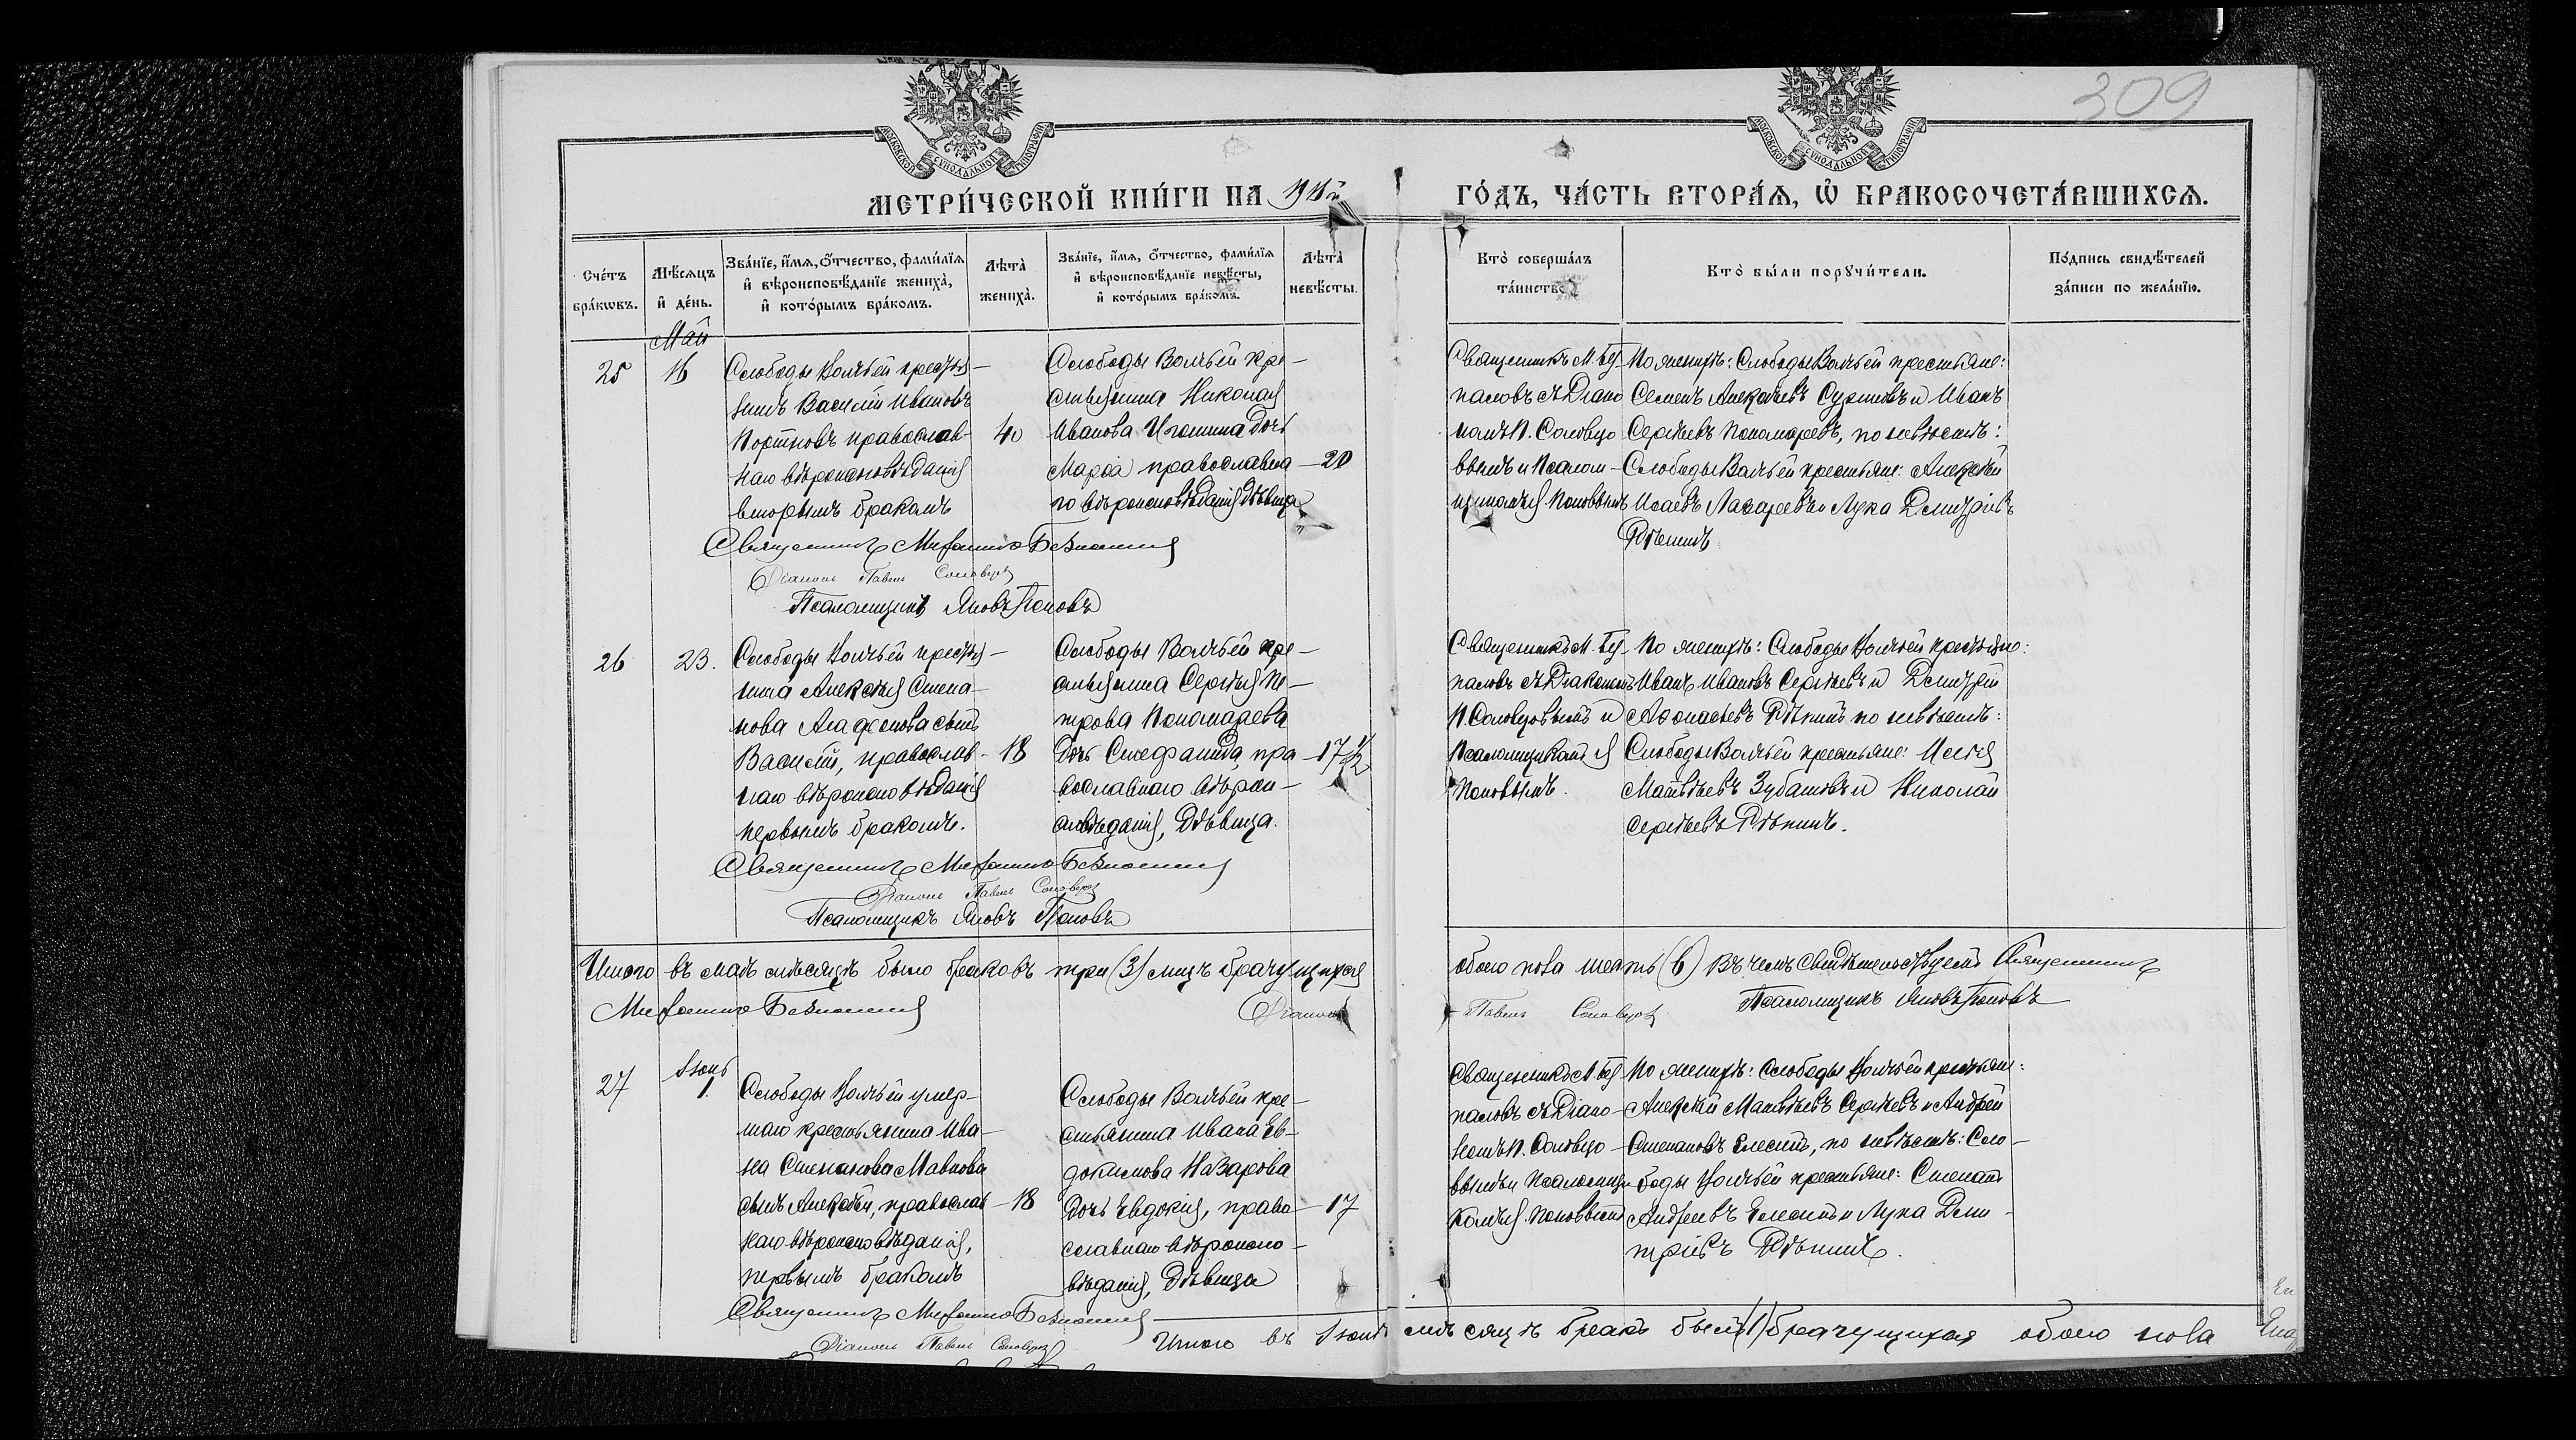 309
МОСКОВСКОЙ СѴНОДАЛЬНОЙ ТИПОГРАФІИ
МОСКОВСКОЙ СѴНОДАЛЬНОЙ ТИПОГРАФІИ
МЕТРИ́ЧЕСКОЙ КНИ́ГИ НА 1911й ГО́ДЪ, ЧА́СТЬ ВТОРА́Ѧ, Ѡ БРАКОСОЧЕТА́ВШИХСѦ.
Сче́тъ
бра́кѡвъ.
Мѣ́сѧцъ
и҆ де́нь.
Зва́нїе, и҆́мѧ, ѻ҆́тчество, фами́лїѧ
и҆ вѣроисповѣ́данїе жениха̀,
и҆ кото́рымъ бра́комъ.
Лѣта̀
жениха̀.
Зва́нїе, и҆́мѧ, ѻ҆́тчество, фами́лїѧ
и҆ вѣроисповѣ́данїе невѣ́сты,
и҆ кото́рымъ бра́комъ.
Лѣта̀
невѣ́сты.
Кто̀ соверша́лъ
та́инство.
Кто̀ бы́ли порꙋчи́тели.
По́дпись свидѣ́телей
за́писи по жела́нїю.
Май
25
16
Слободы Волчьей крестья-
нинъ Василій Ивановъ
Портновъ православ-
наго вѣроисповѣданія
вторымъ бракомъ
40
Слободы Волчьей кре-
стьянина Николая
Иванова дочь
Марія православна-
го вѣроисповѣданія дѣвица
20
Священникъ М. Без-
паловъ съ Діако-
номъ П. Соловцо-
вымъ и Псалом-
щикомъ Я. Поповымъ
По женихѣ: Слободы Волчьей крестьяне:
Семенъ Алексѣевъ и Иванъ
Сергѣевъ Пономаревъ, по невѣстѣ:
Слободы Волчьей крестьяне: Алексѣй
Исаевъ Лазаревъ и Лука Дмитріевъ
Рѣпинъ
Священникъ Митрофанъ
Діаконъ Павелъ Соловцовъ
Псаломщикъ Яковъ Поповъ
26
23.
Слободы Волчьей крестья-
нина Алексѣя Степа-
нова Агафонова сынъ
Василій, православ-
наго вѣроисповѣданія
первымъ бракомъ.
18
Слободы Волчьей кре-
стьянина Сергѣя Пе-
трова Пономарева
дочь Стефанида, пра-
вославнаго вѣроис-
повѣданія, дѣвица.
17 1/2
Священникъ М. Без-
паловъ съ Діакономъ
П. Соловцовымъ и
Псаломщикомъ Я
Поповымъ.
По женихѣ: Слободы Волчьей крестьяне:
Иванъ Ивановъ Сергѣевъ и Дмитрій
Афонасьевъ Рѣпинъ по невѣстѣ:
Слободы Волчьей крестьяне:
Матвѣевъ Зубановъ и Николай
Сергѣевъ Рѣпинъ.
Священникъ Митрофанъ
Діаконъ Павелъ Соловцовъ
Псаломщикъ Яковъ Поповъ
Итого въ маѣ мѣсяцѣ было браковъ три (3) лицъ брачущихся обоего пола шесть (6) Въ чемъ свидѣтельствуемъ Священникъ
Митрофанъ Діаконъ Павелъ Соловцовъ Псаломщикъ Яковъ Поповъ
27
Іюнь
1.
Слободы Волчьей умер-
шаго крестьянина Ива-
на Степанова Мавкова
сынъ Алексѣй, православ-
наго вѣроисповѣданія,
первымъ бракомъ
18
Слободы Волчьей кре-
стьянина Ивана Ев-
докимова Назарова
дочь Евдокія, право-
славнаго вѣроиспо-
вѣданія, дѣвица
17
Священникъ М. Без-
паловъ съ Діако-
номъ П. Соловцо-
вымъ и Псаломщи-
комъ Я. Поповымъ
По женихѣ: Слободы Волчьей крестьяне:
Алексѣй Матвѣевъ Сергѣевъ и Андрей
Степановъ Елесинъ, по невѣстѣ: Сло-
боды Волчьей крестьяне: Степанъ
Андреевъ Елесинъ и Лука Дми-
тріевъ Рѣпинъ.
Священникъ Митрофанъ
Діаконъ Павелъ Соловцовъ
Итого въ Іюнѣ мѣсяцѣ бракъ былъ (1) брачущихся обоего пола